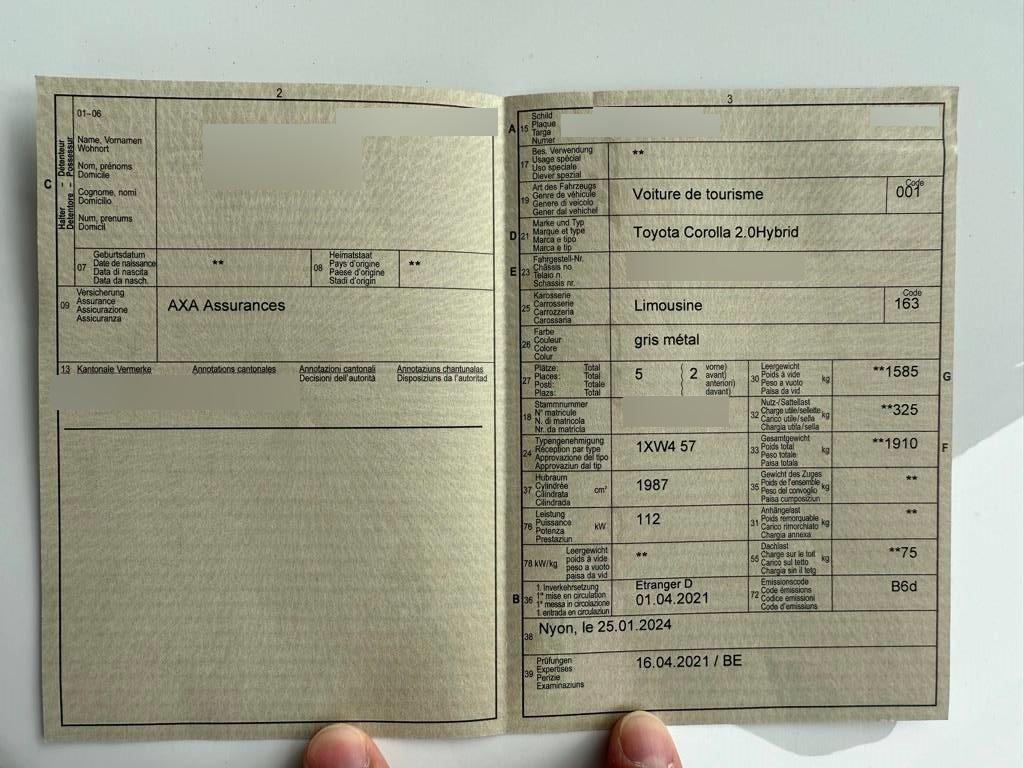 2
01–06
Halter Détenteur
Detentore Possessur
C
Name, Vornamen
Wohnort
Nom, prénoms
Domicile
Cognome, nomi
Domicilio
Num, prenums
Domicil
07
Geburtsdatum
Date de naissance
Data di nascita
Data da nasch.
**
08
Heimatstaat
Pays d'origine
Paese d'origine
Stadi d'origin
**
09
Versicherung
Assurance
Assicurazione
Assicuranza
AXA Assurances
13 Kantonale Vermerke
Annotations cantonales
Annotazioni cantonali
Decisioni dell'autorità
Annotaziuns chantunalas
Disposiziuns da l'autoritad
3
A
15
Schild
Plaque
Targa
Numer
17
Bes. Verwendung
Usage spécial
Uso speciale
Diever spezial
**
19
Art des Fahrzeugs
Genre de véhicule
Genere di veicolo
Gener dal vehichel
Voiture de tourisme
Code
001
D
21
Marke und Typ
Marque et type
Marca e tipo
Marca e tip
Toyota Corolla 2.0Hybrid
E
23
Fahrgestell-Nr.
Châssis no
Telaio n.
Schassis nr.
25
Karosserie
Carrosserie
Carrozzeria
Carossaria
Limousine
Code
163
26
Farbe
Couleur
Colore
Colur
gris métal
27
Plätze: Total
Places: Total
Posti: Totale
Plazs: Total
5
2
vorne)
avant)
anteriori)
davant)
30
Leergewicht
Poids à vide
Peso a vuoto
Paisa da vid
kg
**1585
G
18
Stammnummer
N° matricule
N. di matricola
Nr. da matricla
32
Nutz-/Sattellast
Charge utile/sellette
Carico utile/sella
Chargia utila/sella
kg
**325
24
Typengenehmigung
Réception par type
Approvazione del tipo
Approvaziun dal tip
1XW4 57
33
Gesamtgewicht
Poids total
Peso totale
Paisa totala
kg
**1910
F
37
Hubraum
Cylindrée
Cilindrata
Cilindrada
cm³
1987
35
Gewicht des Zuges
Poids de l'ensemble
Peso del convoglio
Paisa cumposiziun
kg
**
76
Leistung
Puissance
Potenza
Prestaziun
kW
112
31
Anhängelast
Poids remorquable
Carico rimorchiato
Chargia annexa
kg
**
78 kW/kg
Leergewicht
poids à vide
peso a vuoto
paisa da vid
**
55
Dachlast
Charge sur le toit
Carico sul tetto
Chargia sin il tetg
kg
**75
B
36
1. Inverkehrsetzung
1re mise en circulation
1a messa in circolazione
1. entrada en circulaziun
Etranger D
01.04.2021
72
Emissionscode
Code émissions
Codice emissioni
Code d'emissiuns
B6d
38
Nyon, le 25.01.2024
39
Prüfungen
Expertises
Perizie
Examinaziuns
16.04.2021 / BE